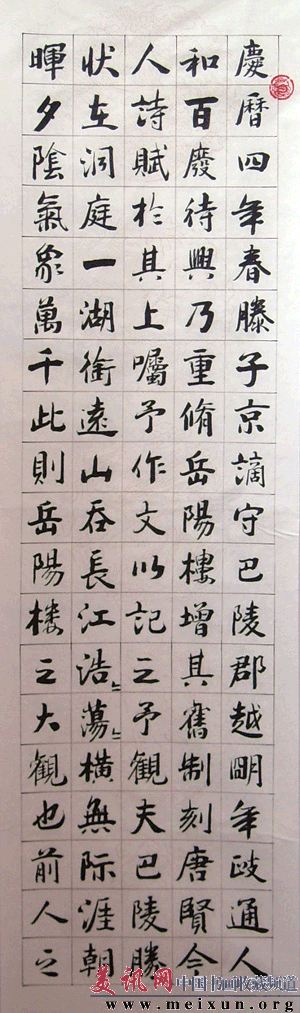 慶曆四年春滕子京謫守巴陵郡越明年政通人
和百廢待興乃重脩岳陽樓增其舊制刻唐賢今
人詩賦於其上囑予作文以記之予觀夫巴陵勝
狀在洞庭一湖銜遠山吞長江浩々蕩々橫無際涯朝
暉夕陰氣象萬千此則岳陽楼之大觀也前人之
美讯网 中国书画收藏频道
www.meixun.org